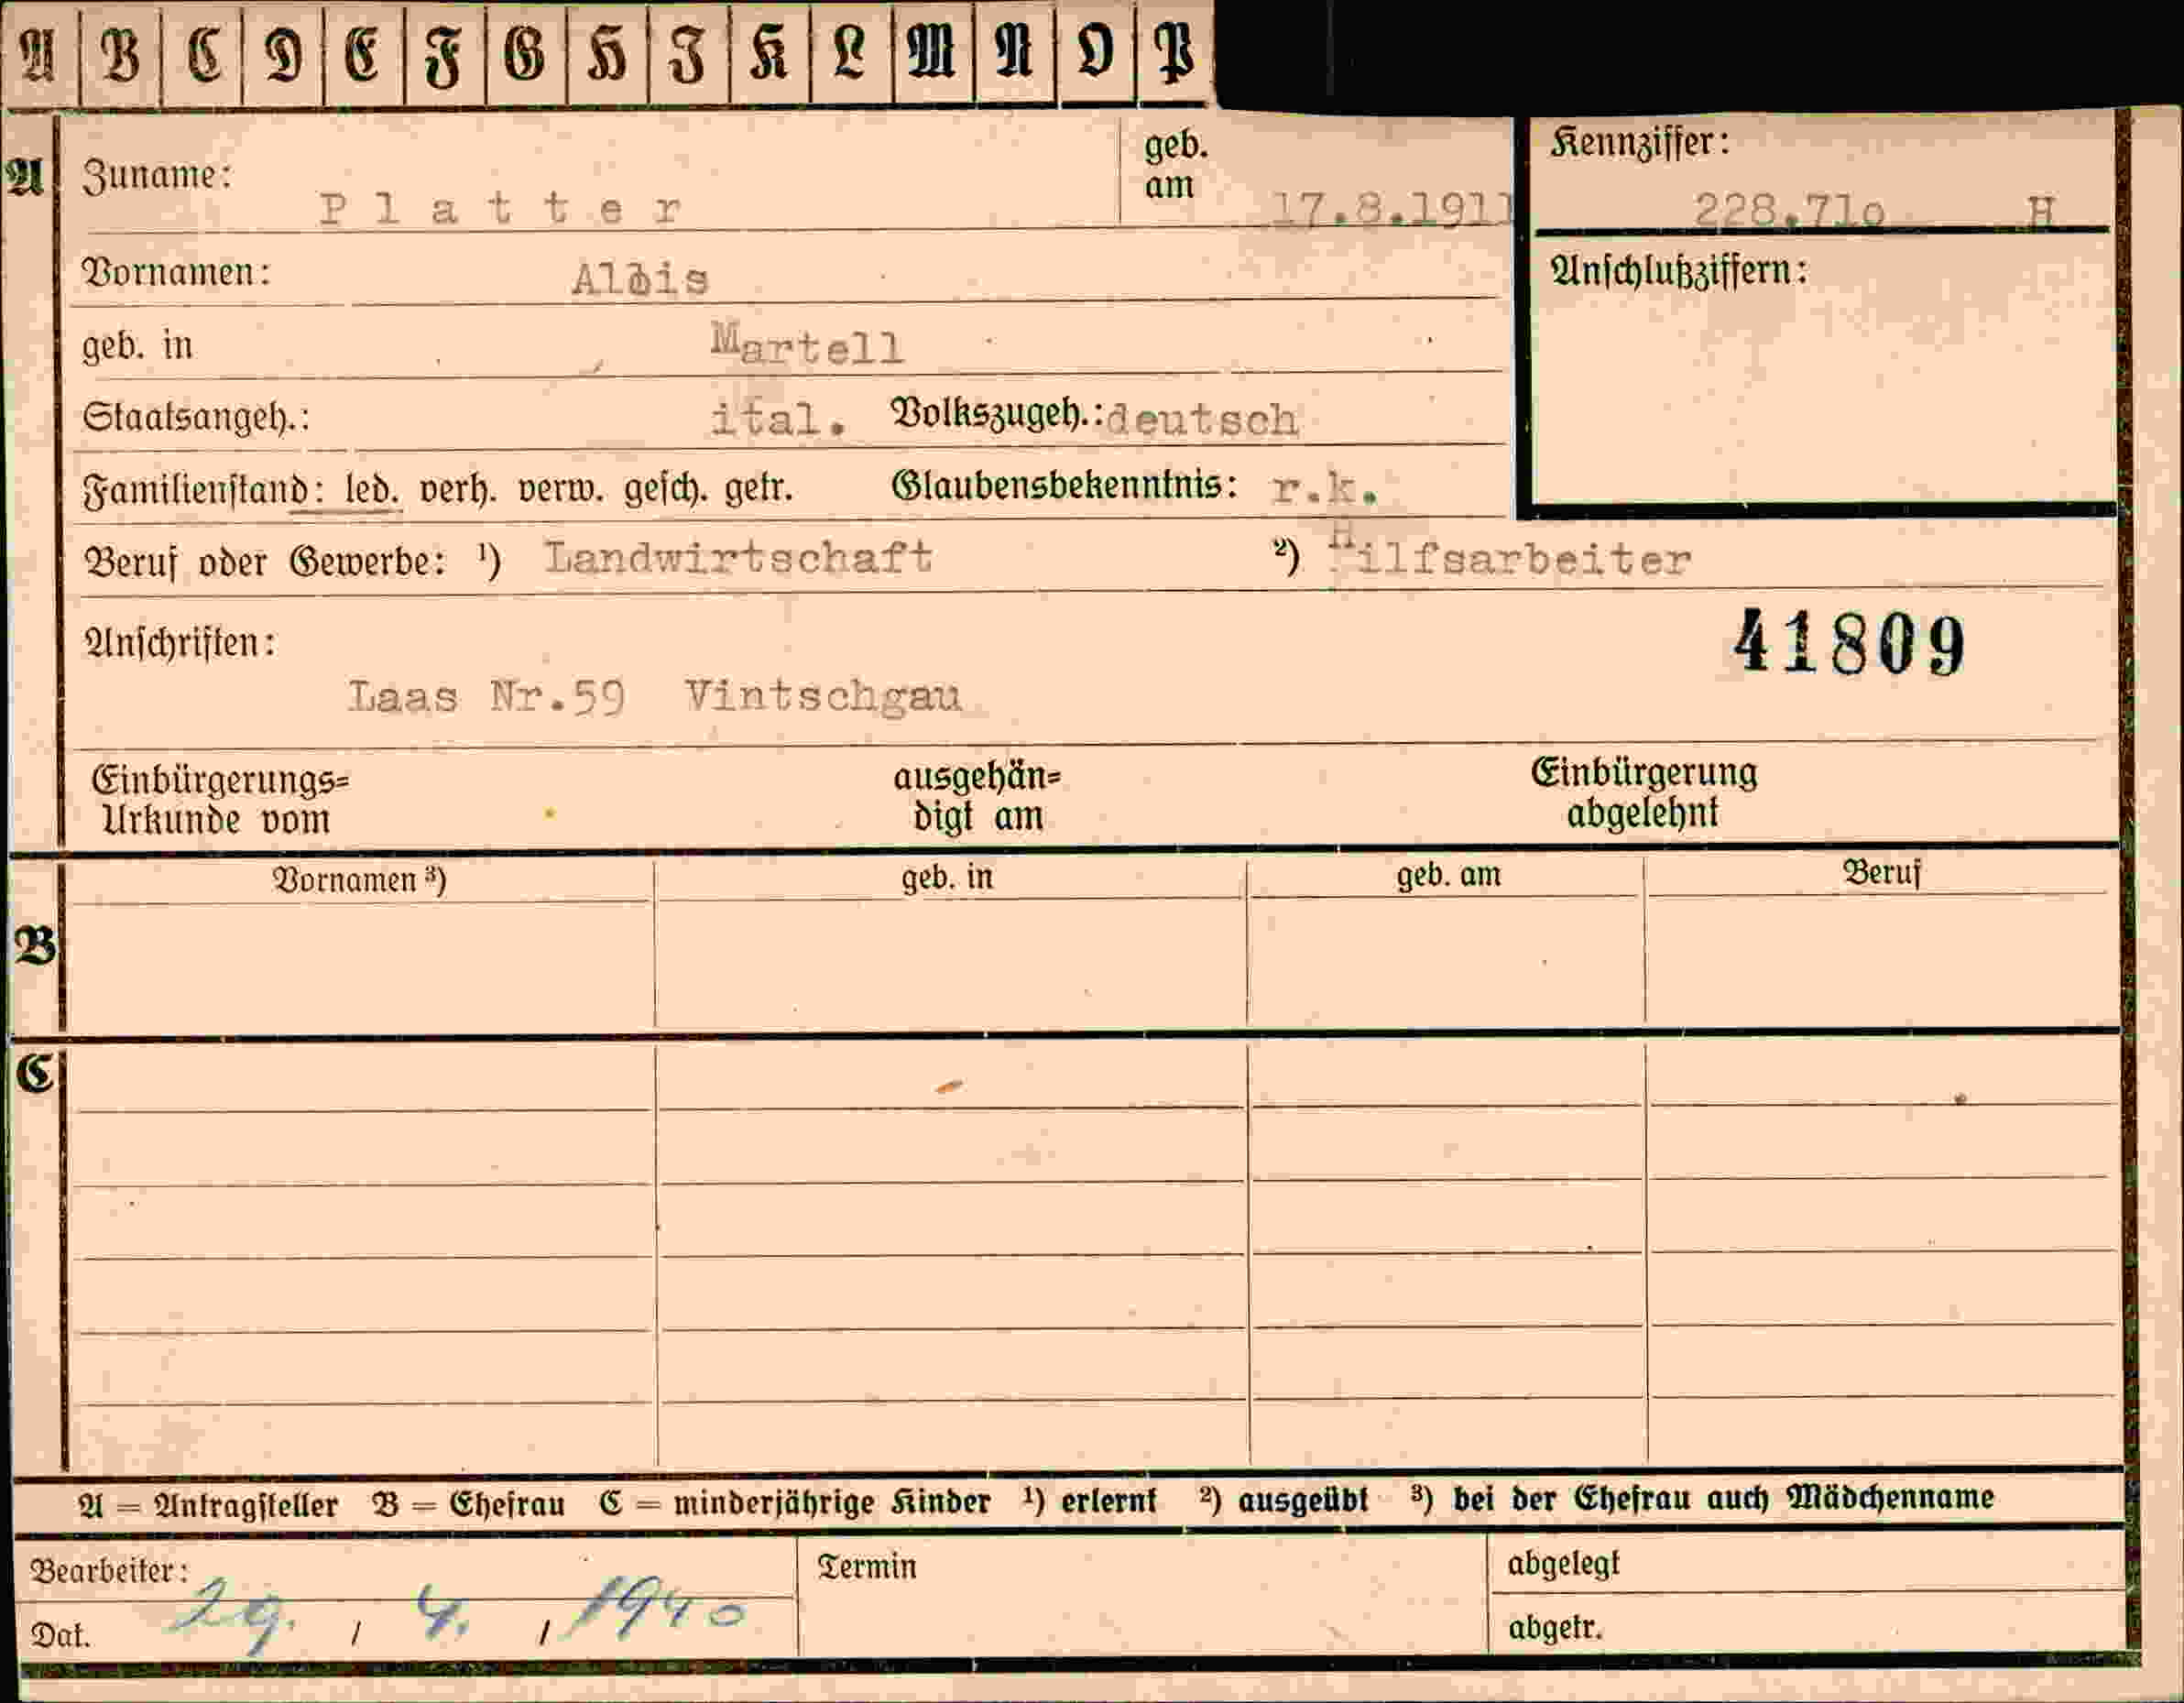 A B C D E F G H I K L M N O P
A
Zuname: Platter geb. am 17.8.1911
Kennziffer: 228.71o H
Vornamen: Alois
Anschlußziffern:
geb. in Martell
Staatsangeh.: ital. Volkszugeh.: deutsch
Familienstand: led. verh. verw. gesch. getr. Glaubensbekenntnis: r.k.
Beruf oder Gewerbe: ¹) Landwirtschaft ²) Hilfsarbeiter
Anschriften: 41809
Laas Nr.59 Vintschgau
Einbürgerungs= ausgehän= Einbürgerung
Urkunde vom digt am abgelehnt
Vornamen ³) geb. in geb. am Beruf
B
C
A = Antragsteller B = Ehefrau C = minderjährige Kinder ¹) erlernt ²) ausgeübt ³) bei der Ehefrau auch Mädchenname
Bearbeiter: Termin abgelegt
Dat. 29. / 4. / 1940 abgetr.